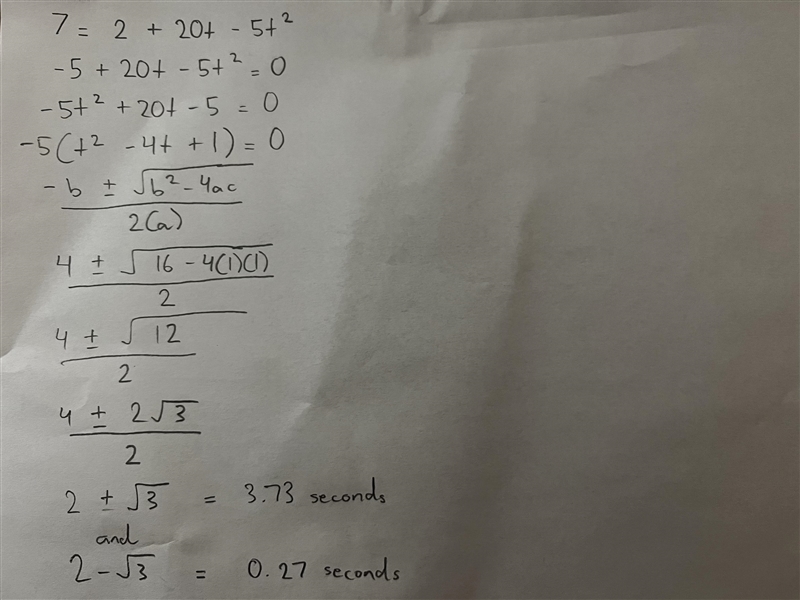 7 = 2 + 20t - 5t²
-5 + 20t - 5t² = 0
-5t² + 20t - 5 = 0
-5(t² - 4t + 1) = 0
-b ± √b² - 4ac
2(a)
4 ± √16 - 4(1)(1)
2
4 ± √12
2
4 ± 2√3
2
2 ± √3 = 3.73 seconds
and
2 - √3 = 0.27 seconds